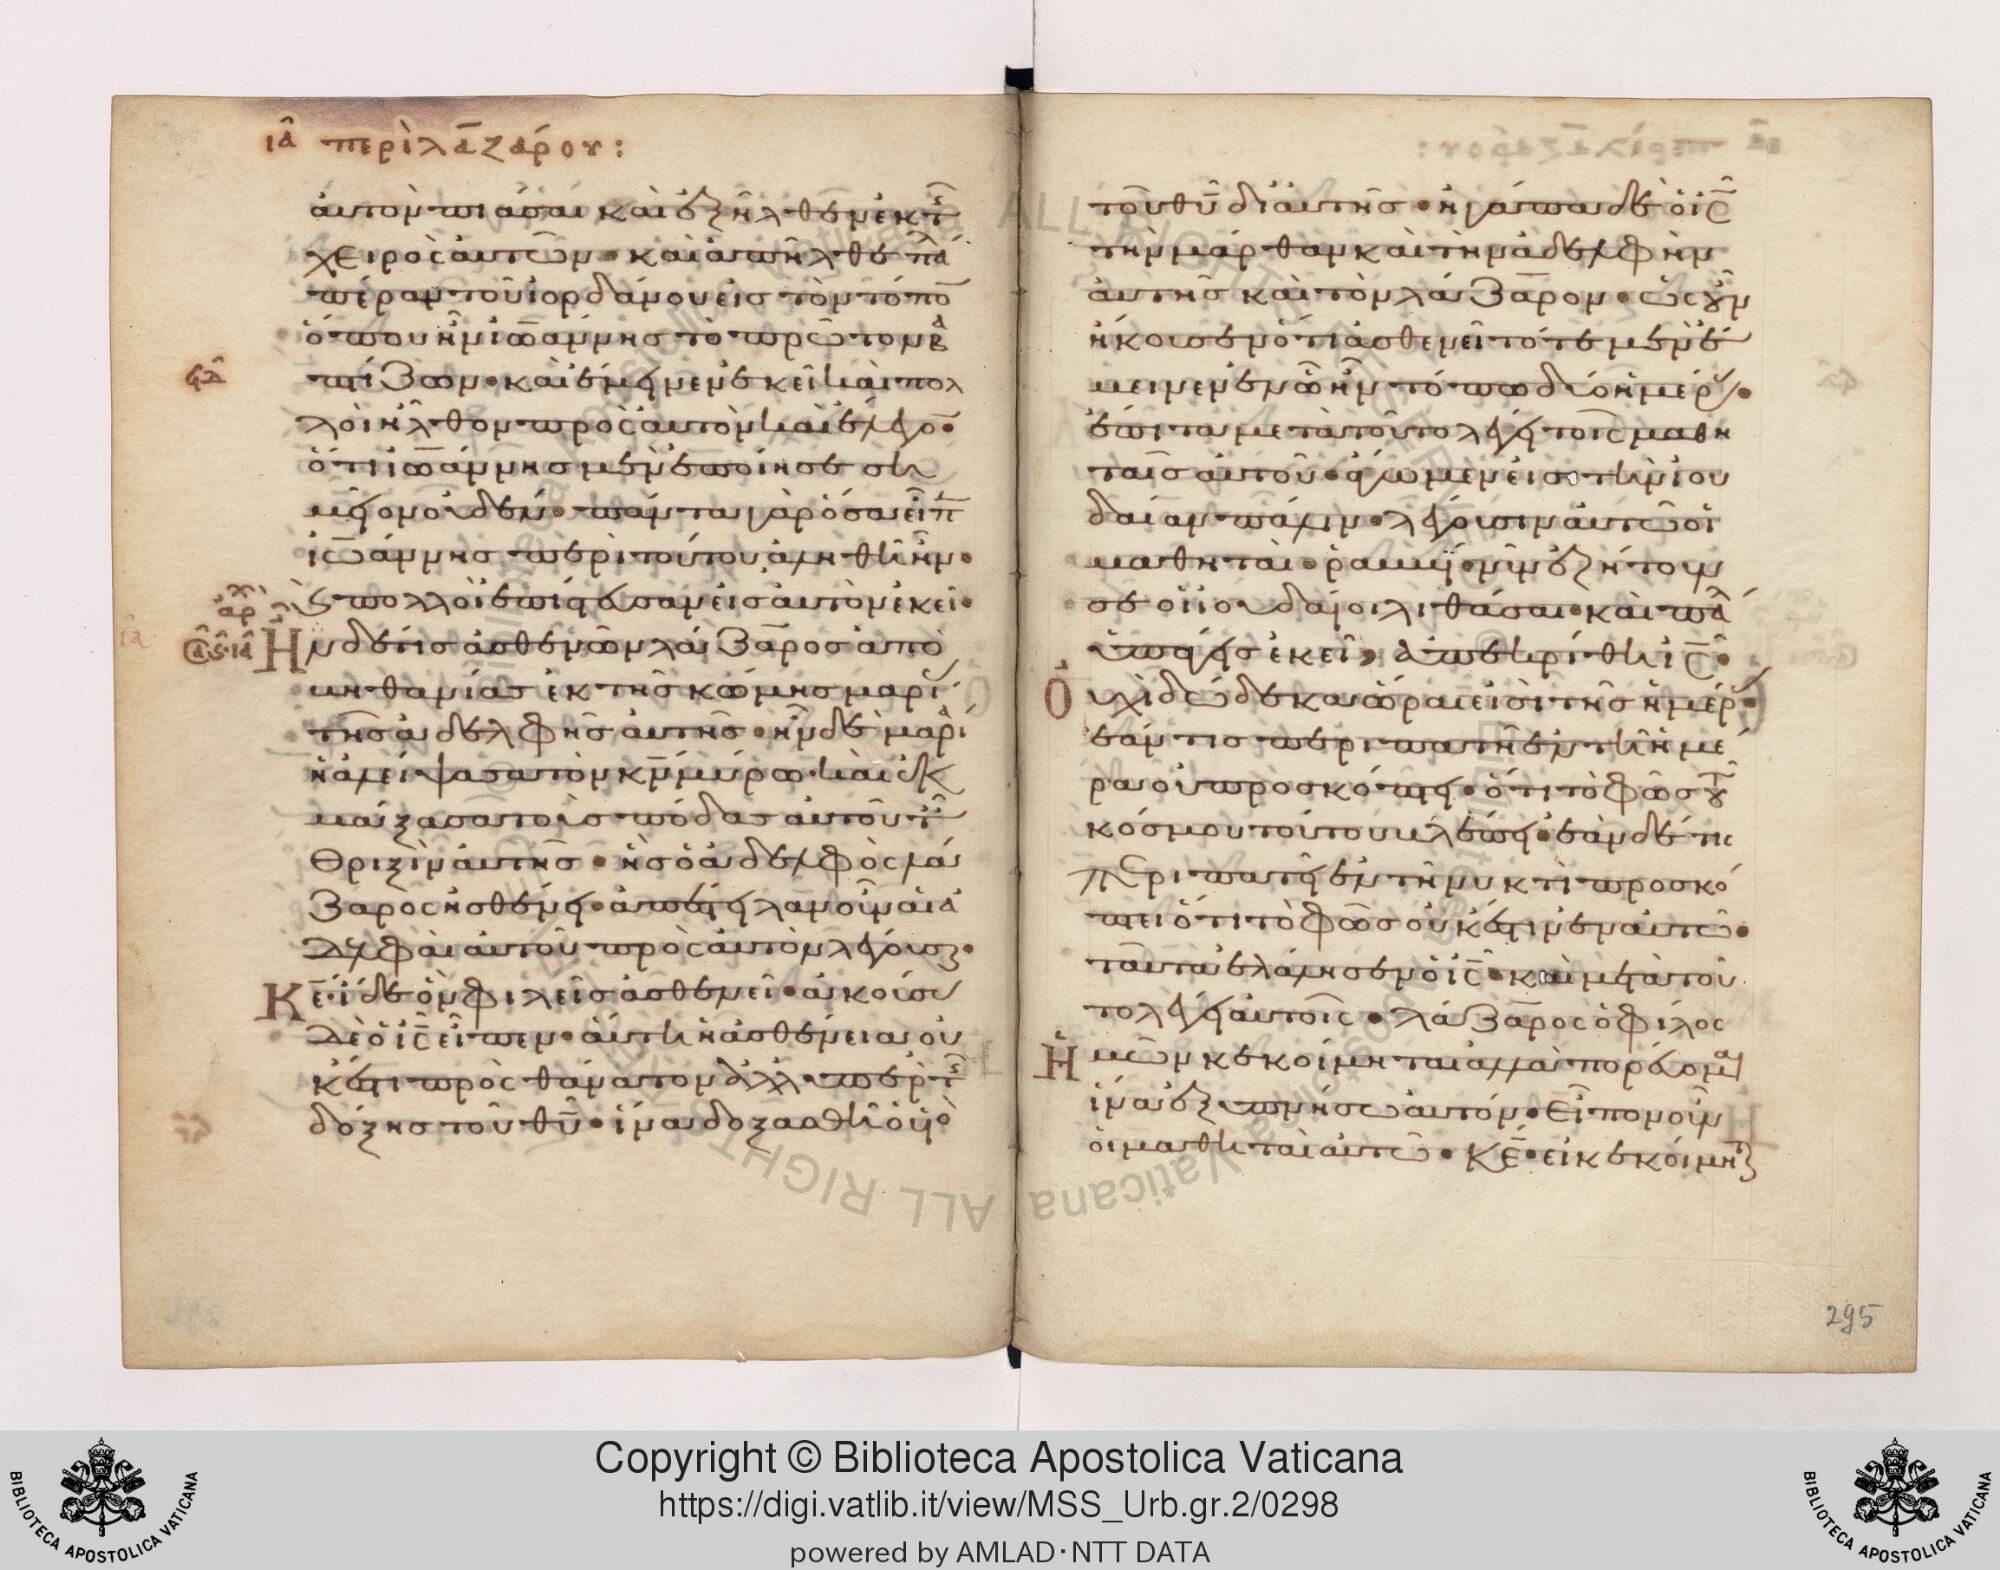 ια περὶ λαζάρου:
αυτὸν πιάσαι καὶ ἐξῆλθεν ἐκ τῆς
χειρὸς αυτῶν· καὶ ἀπῆλθε πάλ
πέραν τοῦ ἰορδάνου εἰς τὸν τόπο
ὅπου ἦν ἰωάννης τὸ πρῶτον βα
πτίζων· καὶ ἔμεινεν ἐκεῖ καὶ πολ
λοὶ ἦλθον πρὸς αυτὸν καὶ ἔλεγον·
ὅτι ἰωάννης μὲν ἐποίησε ση
μεῖον οὐδέν· πάντα γὰρ ὅσα εἶπ
ἰωάννης περὶ τούτου ἀληθῆ ἦν·
ϛ πολλοὶ ἐπίστευσαν εἰς αυτὸν ἐκεῖ·
αρχ
Ἦν δέ τις ἀσθενῶν λάζαρος ἀπὸ
βηθανίας ἐκ τῆς κώμης μαρί
τῆς ἀδελφῆς αυτῆς· ἦν δὲ μαρί
ἡ ἀλείψασα τὸν κν μύρω· καὶ ἐκ
μάξασα τοὺς πόδας αυτοῦ τ
θριξὶν αυτῆς· ἧς ὁ ἀδελφὸς λά
ζαρος ἠσθένει· ἀπέστειλαν οὖν αἱ ἀ
δελφαὶ αυτοῦ πρὸς αυτὸν λέγουσ·
Κε ἴδε ὃν φιλεῖς ἀσθενεῖ· ἀκούσ
δὲ ὁ ις εἶπεν· αὕτη ἡ ἀσθένεια οὐ
κ ἔστι πρὸς θάνατον ἀλλ ὑπὲρ τ
δόξης τοῦ θυ· ἵνα δοξασθῆ ὁ υἱὸ
τοῦ θυ δι' αυτῆς· ἠγάπα δὲ ὁ ις
τὴν μάρθαν καὶ τὴν ἀδελφὴν
αυτῆς καὶ τὸν λάζαρον· ὡς οὖν
ἤκουσεν ὅτι ἀσθενεῖ τότε μὲν ἔ
μεινεν ἐν ὧ ἦν τόπω δύο ἡμέρ·
ἔπειτα μετὰ τοῦτο λέγει τοῖς μαθη
ταῖς αυτοῦ· ἄγωμεν εἰς τὴν ἰου
δαίαν πάλιν· λέγουσιν αυτῶ οἱ
μαθηταὶ· ῥαββί· νῦν ἐζήτουν
σε οἱ ἰουδαῖοι λιθάσαι· καὶ πάλ
ὑπάγεις ἐκεῖ; ἀπεκρίθη ις·
Οὐχὶ δώδεκα ὧραι εἰσὶ τῆς ἡμέρ·
ἐάν τις περιπατῆ ἐν τῆ ἡμέ
ρα οὐ προσκόπτει· ὅτι τὸ φῶς τοῦ
κόσμου τούτου βλέπει· ἐὰν δέ τις
περιπατῆ ἐν τῆ νυκτὶ προσκό
πτει ὅτι τὸ φῶς οὐκ ἔστιν ἐν αυτῶ·
ταῦτα ἐλάλησεν ὁ ις· καὶ μετὰ τοῦ
το λέγει αυτοῖς· λάζαρος ὁ φίλος
Ἡμῶν κεκοίμηται ἀλλὰ πορεύομαι
ἵνα ἐξυπνήσω αυτόν· Εἶπον οὖν
οἱ μαθηταὶ αυτῶ· Κε· εἰ κεκοίμητ
295
Copyright © Biblioteca Apostolica Vaticana
https://digi.vatlib.it/view/MSS_Urb.gr.2/0298
powered by AMLAD·NTT DATA
BIBLIOTECA APOSTOLICA VATICANA
BIBLIOTECA APOSTOLICA VATICANA